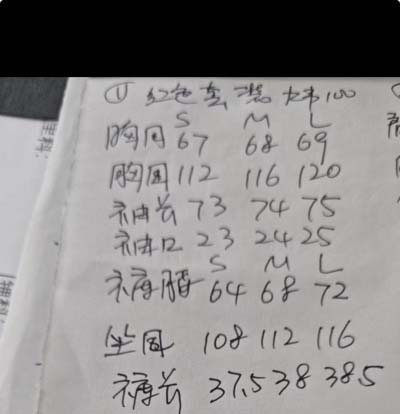 ① 红色套装 大韦100
S M L
胸围 67 68 69
胸围 112 116 120
袖长 73 74 75
袖口 23 24 25
S M L
裤腰 64 68 72
坐围 108 112 116
裤长 37.5 38 38.5
里料: